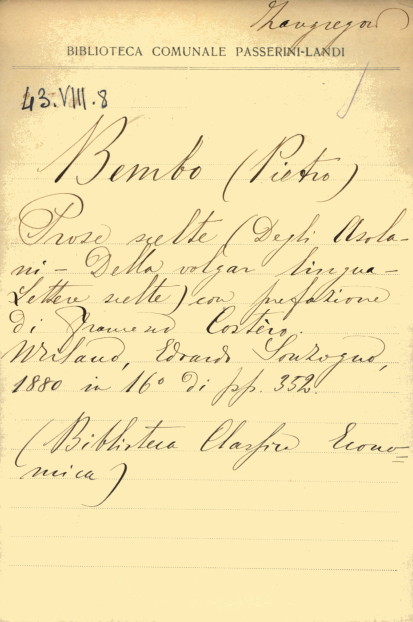 Zangregori
BIBLIOTECA COMUNALE PASSERINI-LANDI
43.VIII.8
Bembo (Pietro)
Prose scelte (Degli Asola-
ni - Della volgar lingua -
Lettere scelte) con prefazione
di Francesco Costèro.
Milano, Edoardo Sonzogno,
1880 in 16º di pp. 352.
(Biblioteca Classica Econo=
mica)